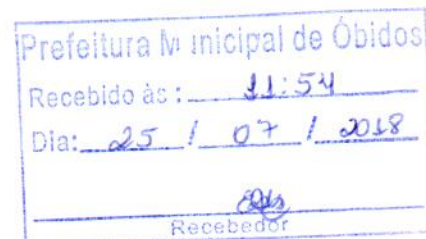 Prefeitura Municipal de Óbidos
Recebido às: 11:54
Dia: 25 / 07 / 2018
Recebedor